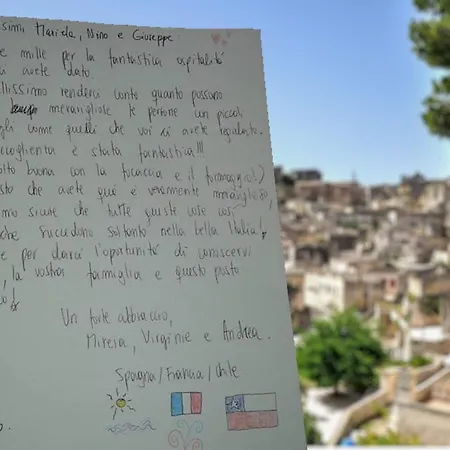 simi Mariela, Nino e Giuseppe:
e mille per la fantastica ospitalità
ci avete dato.
llissimo renderci conto quanto possano
meravigliose le persone con piccoli
gli come quelli che voi ci avete regalato.
ccoglienta è stata fantastica!!!
olto buona con la focaccia e il formaggio!)
sto che avete qui è veramente meraviglioso,
mo sicure che tutte queste cose così
che succedono soltanto nella bella Italia!
e per darci l'opportunità di conoscervi
, la vostra famiglia e questo posto
co!
Un forte abbraccio,
Mireia, Virginie e Andrea.
Spagna/Francia/Chile
o.